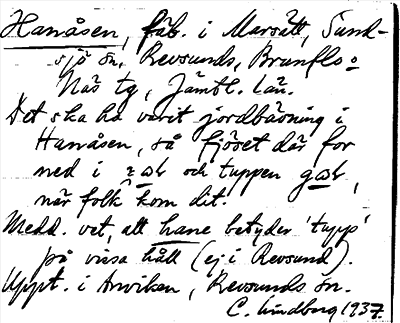 Hanåsen, fäb. i Marsätt, Sund-
sjö sn, Revsunds, Brunflo o
Näs tg, Jämtl. län.
Det ska ha varit jordbävning i
Hanåsen, så fjöset där for
ned i och tuppen gol,
när folk kom dit.
Medd. vet, att hane betyder 'tupp'
på vissa håll (ej i Revsund).
Uppt. i Anviken, Revsunds sn.
C. Lindberg 1937.